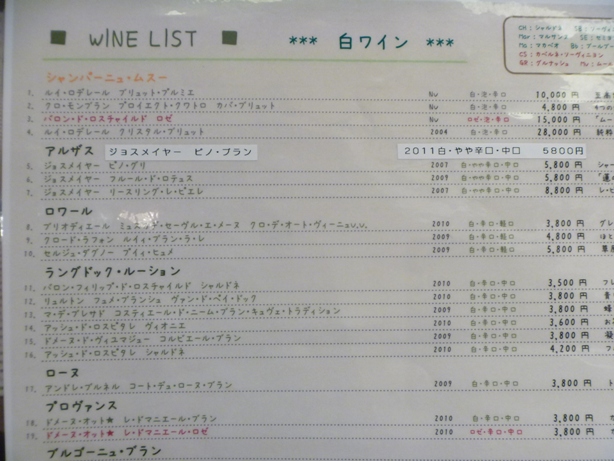 ■ WINE LIST ■ *** 白ワイン ***
CH : シャルドネ
CS : カベルネ・ソーヴィニヨン
GR : グルナッシュ
シャンパーニュ・ムスー
1. ルイ・ロデレール ブリュット・プルミエ NV 白・泡・辛口 10,000 円
2. クロ・モンブラン プロイエクト・クワトロ カバ・ブリュット NV 白・泡・辛口 4,800 円
3. バロン・ド・ロスチャイルド ロゼ NV ロゼ・泡・辛口 15,000 円
4. ルイ・ロデレール クリスタル・ブリュット 2004 白・泡・辛口 28,000 円
アルザス ジョスメイヤー ピノ・ブラン 2011白・やや辛口・中口 5800円
5. ジョスメイヤー ピノ・グリ 2007 白・やや辛口・中口 5,800 円
6. ジョスメイヤー フルール・ド・ロテュス 2009 白・やや辛口・中口 5,800 円
7. ジョスメイヤー リースリング・レ・ピエレ 2007 白・やや辛口・中口 8,800 円
ロワール
8. ブリオディエール ミュスカデ・セーヴル・エ・メーヌ クロ・デ・オート・ヴィーニュV.V. 2010 白・辛口・軽口 3,800 円
9. クロード・ラフォン ルイィ・ブラン・ラ・レ 2009 白・辛口・中口 4,800 円
10. セルジュ・ダグノー プイィ・ヒュメ 2009 白・辛口・中口 5,800 円
ラングドック・ルーション
11. バロン・フィリップ・ド・ロスチャイルド シャルドネ 2010 白・辛口・中口 3,500 円
12. リュルトン フュメ・ブランシュ ヴァン・ド・ペイ・ドック 2010 白・辛口・中口 3,800 円
13. マ・デ・ブレサド コスティエール・ド・ニーム・ブラン・キュヴェ・トラディション 2009 白・辛口・中口 3,800 円
14. アッシュ・ド・ロスピタレ ヴィオニエ 2010 白・辛口・中口 3,600 円
15. ドメーヌ・ド・ヴィユマジュー コルビエール・ブラン 2009 白・辛口・中口 3,800 円
16. アッシュ・ド・ロスピタレ シャルドネ 2010 白・辛口・中口 4,200 円
ローヌ
17. アンドレ・ブルネル コート・デュ・ローヌ・ブラン 2009 白・辛口・中口 3,800 円
プロヴァンス
18. ドメーヌ・オット★ レ・ドマニエール・ブラン 2010 白・辛口・中口 3,800 円
19. ドメーヌ・オット★ レ・ドマニエール・ロゼ 2010 ロゼ・辛口・中口 3,800 円
ブルゴーニュ・ブラン